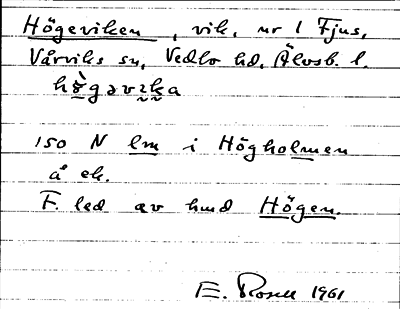 Högeviken, vik, nr 1 Fjus,
Vårviks sn, Vedbo hd, Älvsb. l.
hö̀gəvɪka
150 N lm i Högholmen
å ek.
F. led av hmd Högen.
E. Rosell 1961